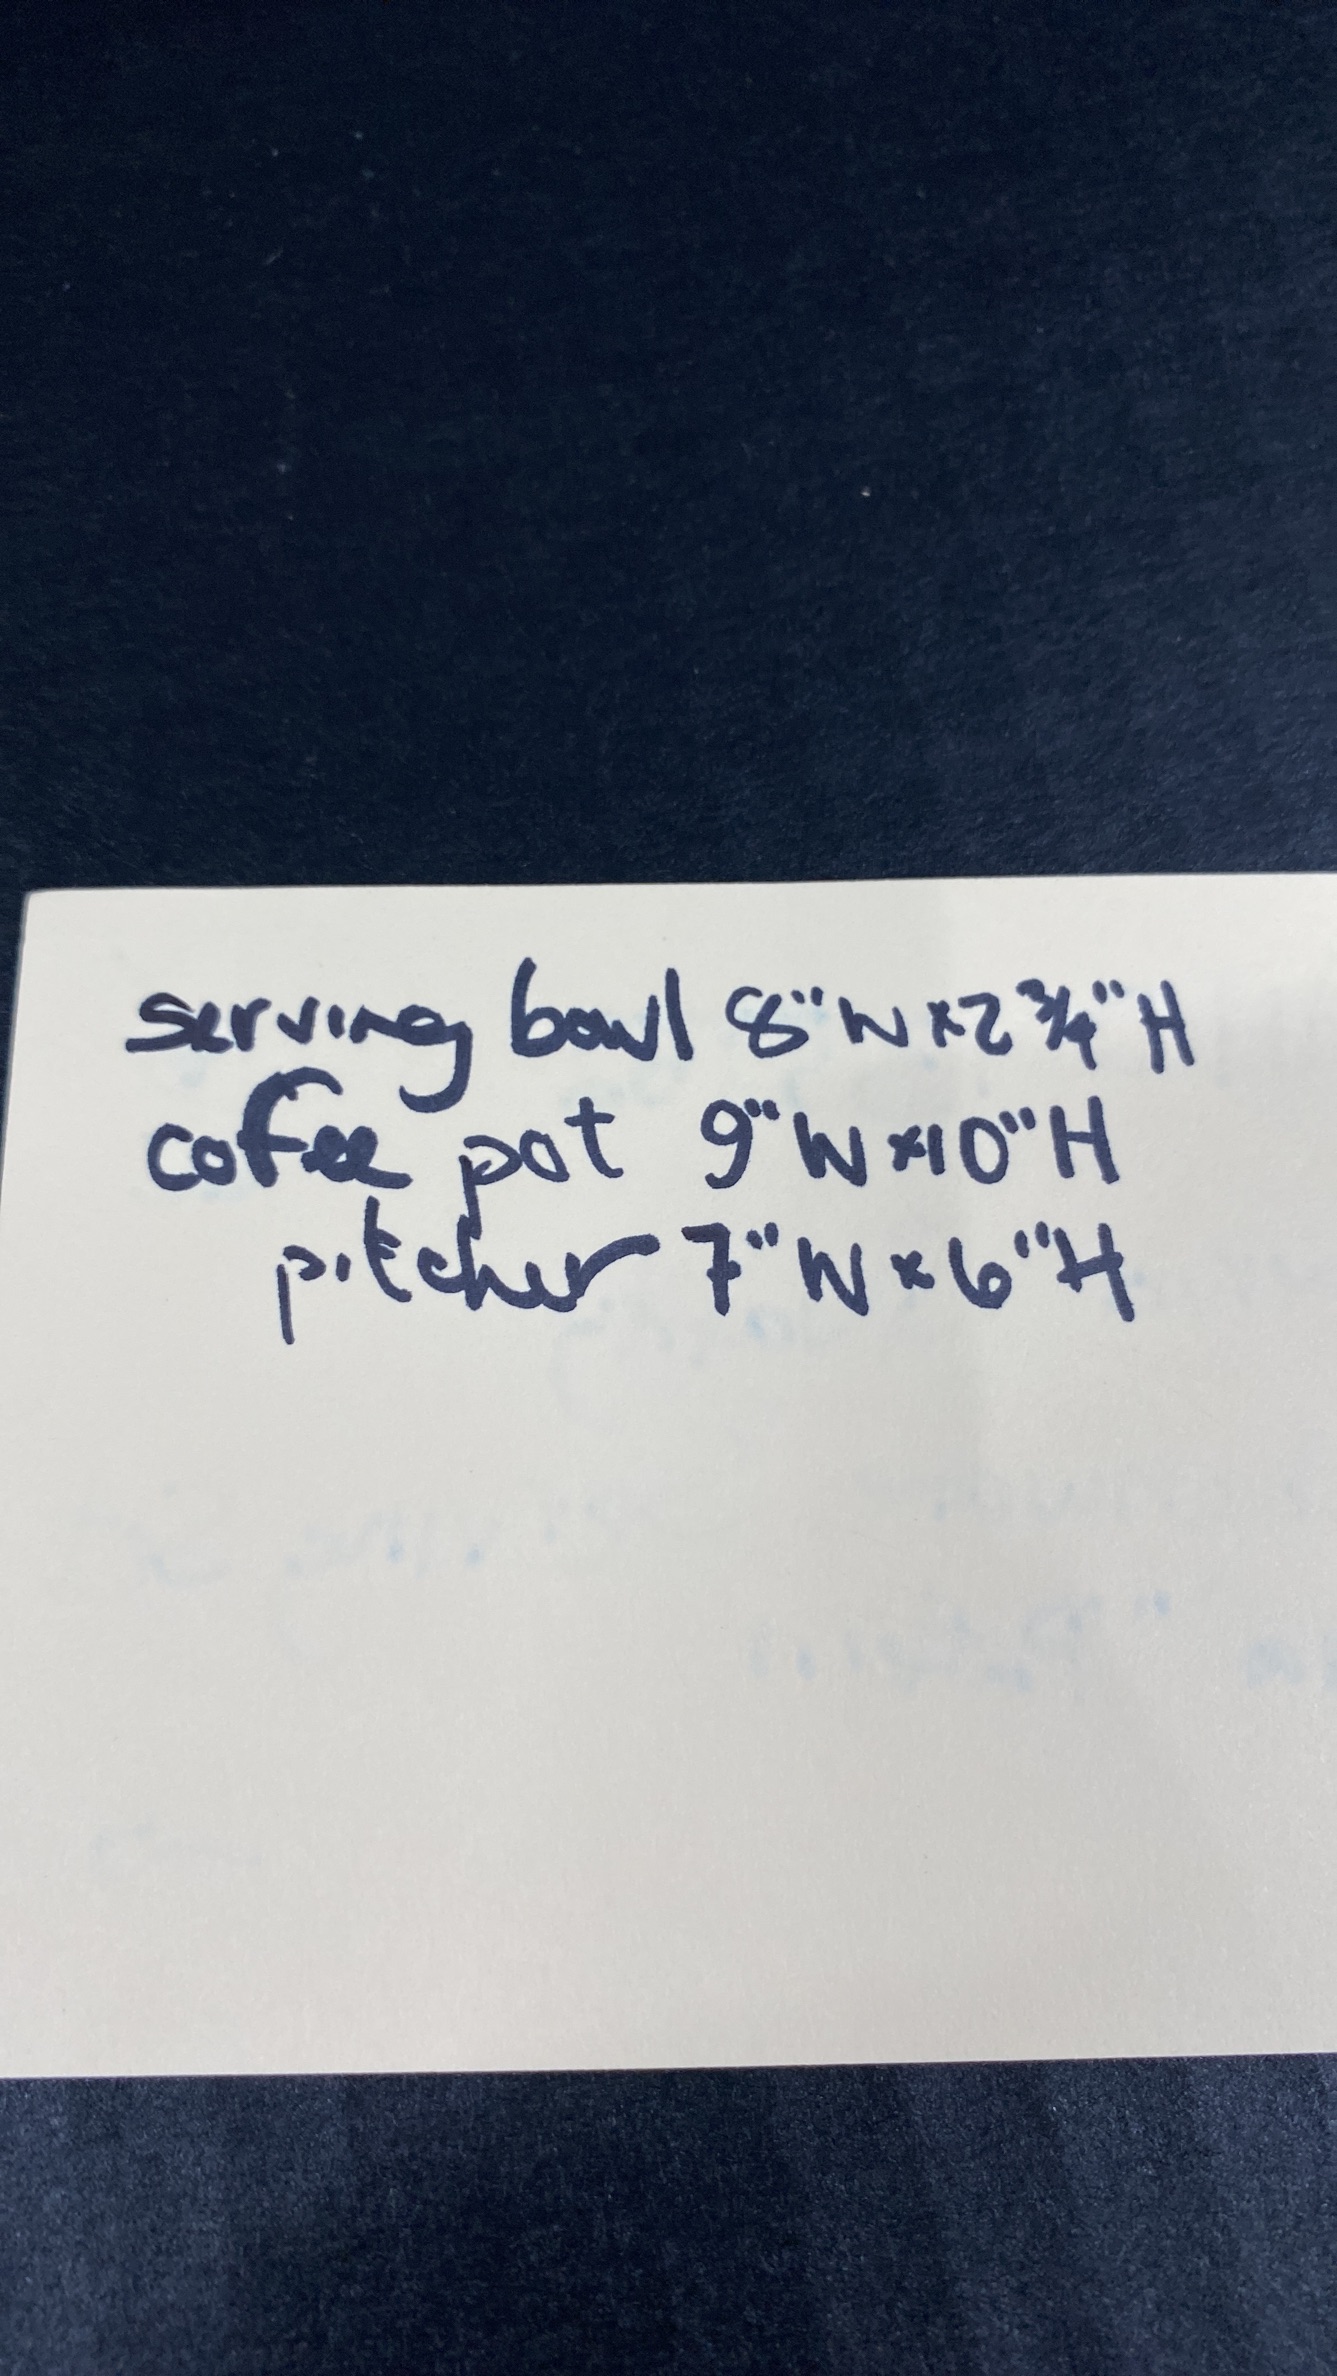 serving bowl 8"W x 2 3/4"H
coffee pot 9"W x 10"H
pitcher 7"W x 6"H